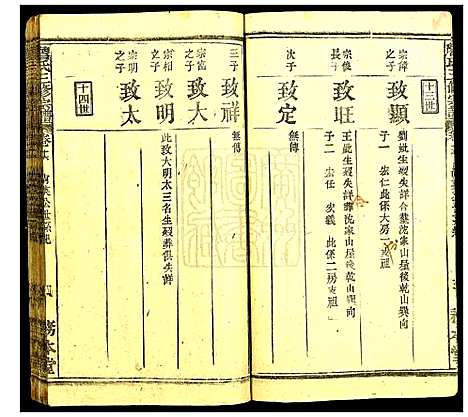 十三世
宗偉之子
致顯
劉妣生歿失詳合葬沈家山屋後乾山巽向
子一 宏仁此係大房一支祖
宗俊長子
致旺
王妣生歿失詳葬沈家山屋後乾山巽向
子二 宏任 宏義 此係二房支祖
次子
致定
無傳
三子
致祥
無傳
宗富之子
致大
宗相之子
致明
宗明之子
致太
此致大明太三名生歿葬俱失詳
十四世
務本堂